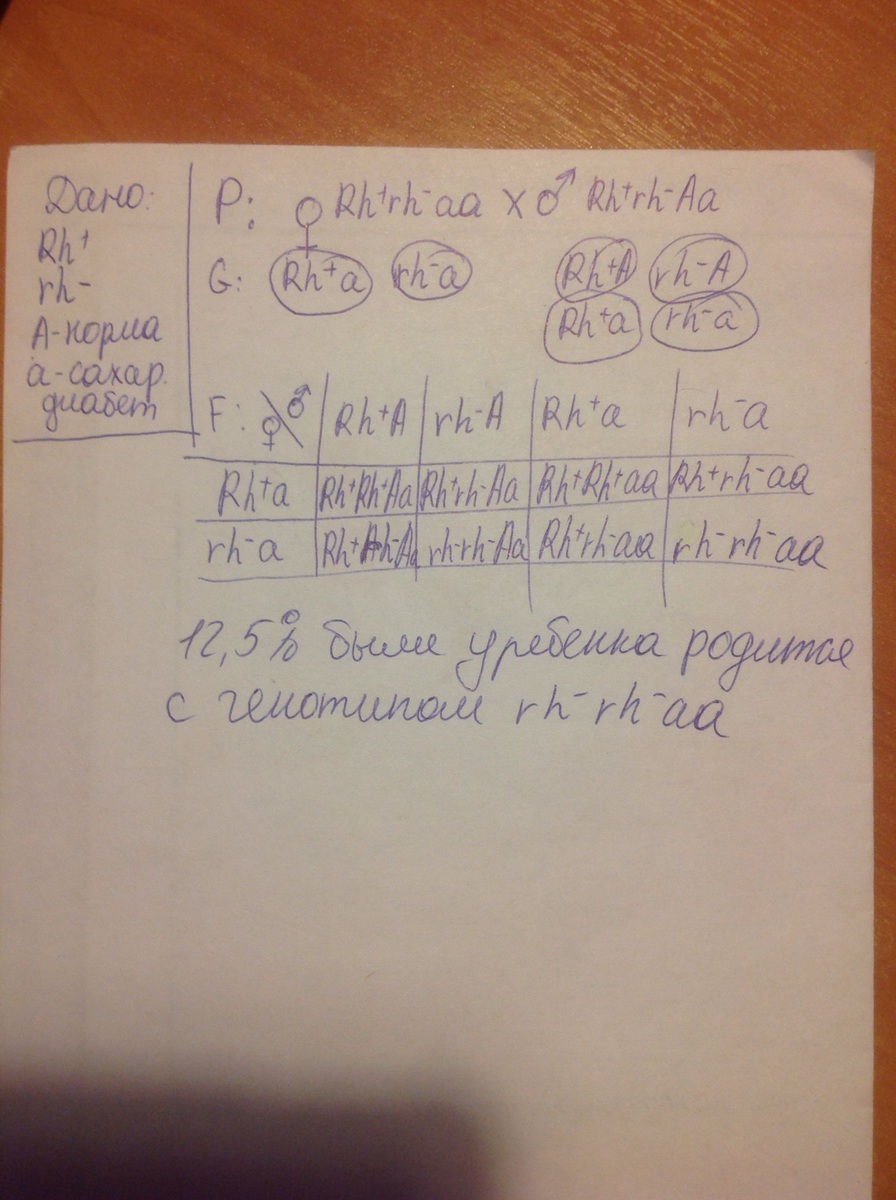 Дано:
Rh⁺
rh⁻
А-норма
а-сахар.
диабет
P: ♀ Rh⁺rh⁻aa × ♂ Rh⁺rh⁻Aa
G: Rh⁺a rh⁻a Rh⁺A rh⁻A
Rh⁺a rh⁻a
F: ♀\♂ Rh⁺A rh⁻A Rh⁺a rh⁻a
Rh⁺a Rh⁺Rh⁺Aa Rh⁺rh⁻Aa Rh⁺Rh⁺aa Rh⁺rh⁻aa
rh⁻a Rh⁺rh⁻Aa rh⁻rh⁻Aa Rh⁺rh⁻aa rh⁻rh⁻aa
12,5% были у ребенка родится
с генотипом rh⁻rh⁻aa